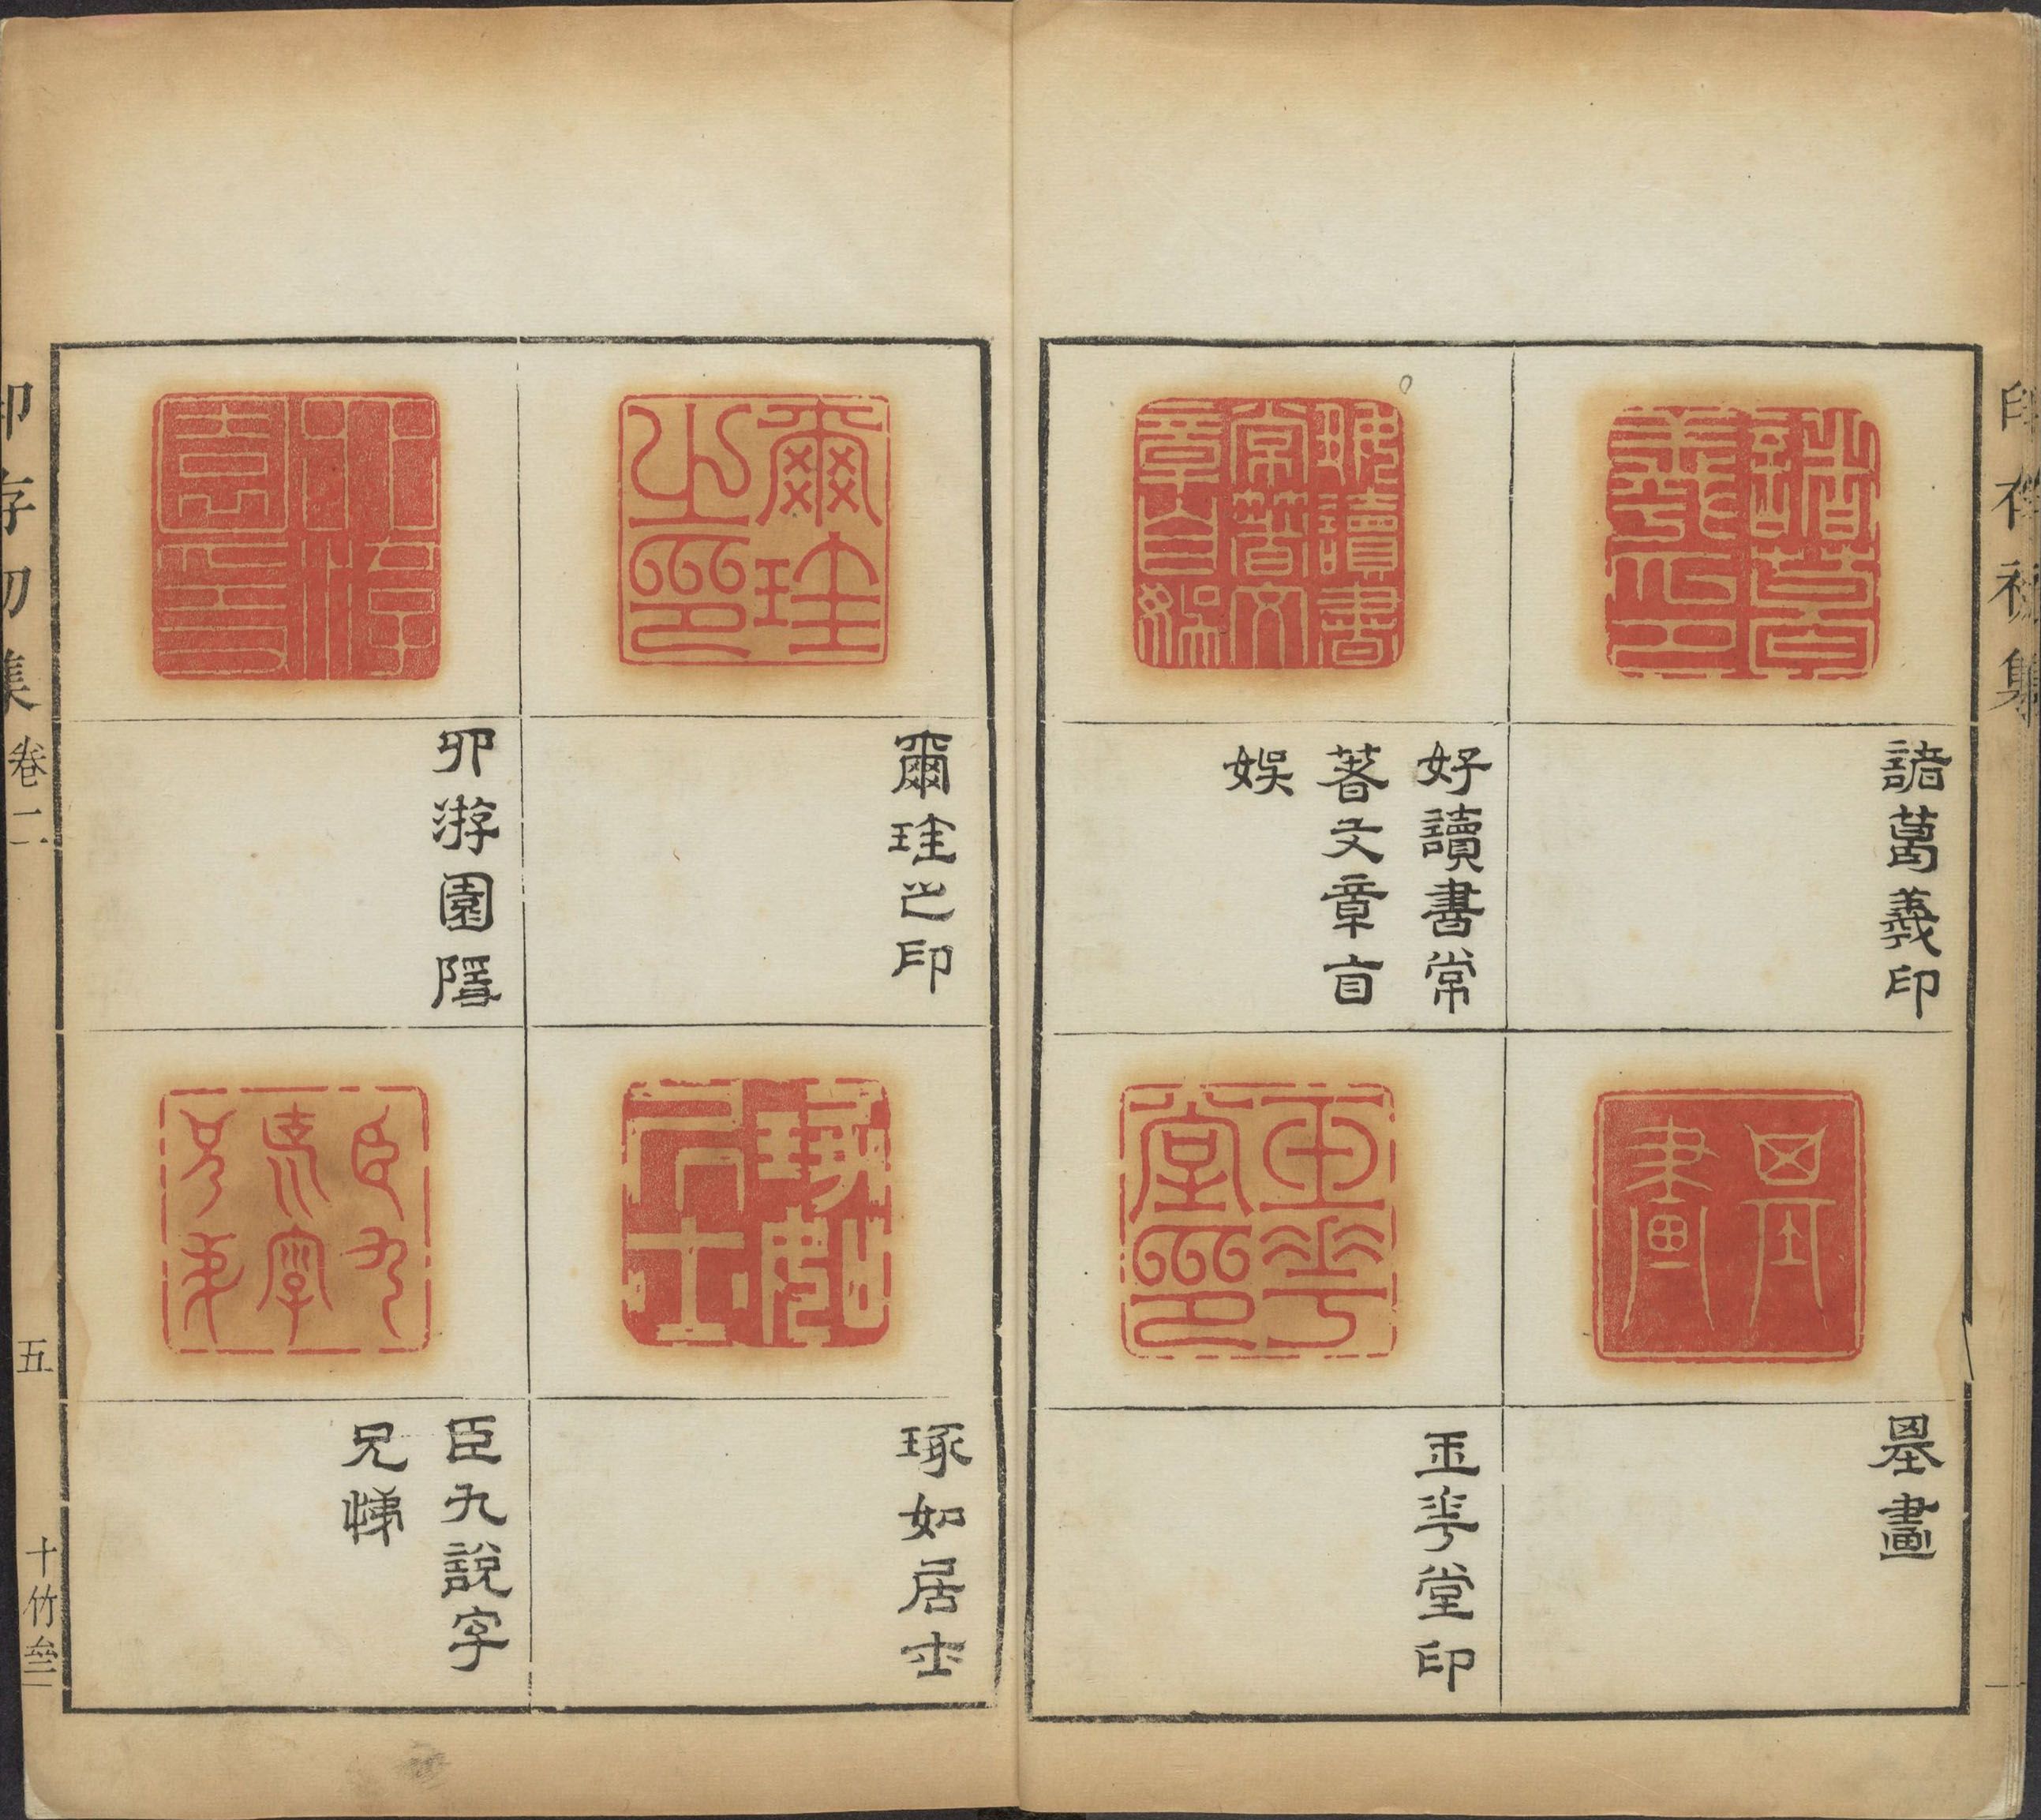 印存初集
諸葛羲印
好讀書常
著文章自
娛
墨畫
玉華堂印
爾珪之印
卯游園隱
琢如居士
臣九說字
兄悌
印存初集
卷二
五
十竹齋